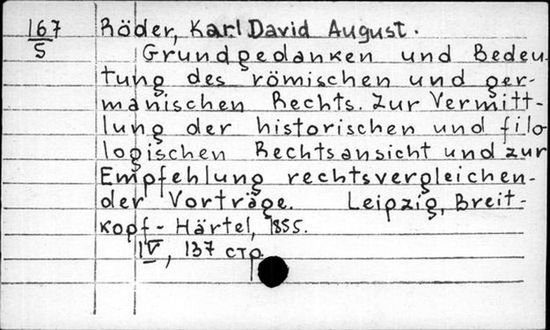 167
5
Röder, Karl David August.
Grundgedanken und Bedeu-
tung des römischen und ger-
manischen Rechts. Zur Vermitt-
lung der historischen und filo-
logischen Rechtsansicht und zur
Empfehlung rechtsvergleichen-
der Vorträge. Leipzig, Breit-
kopf-Härtel, 1855.
IV, 137 стр.